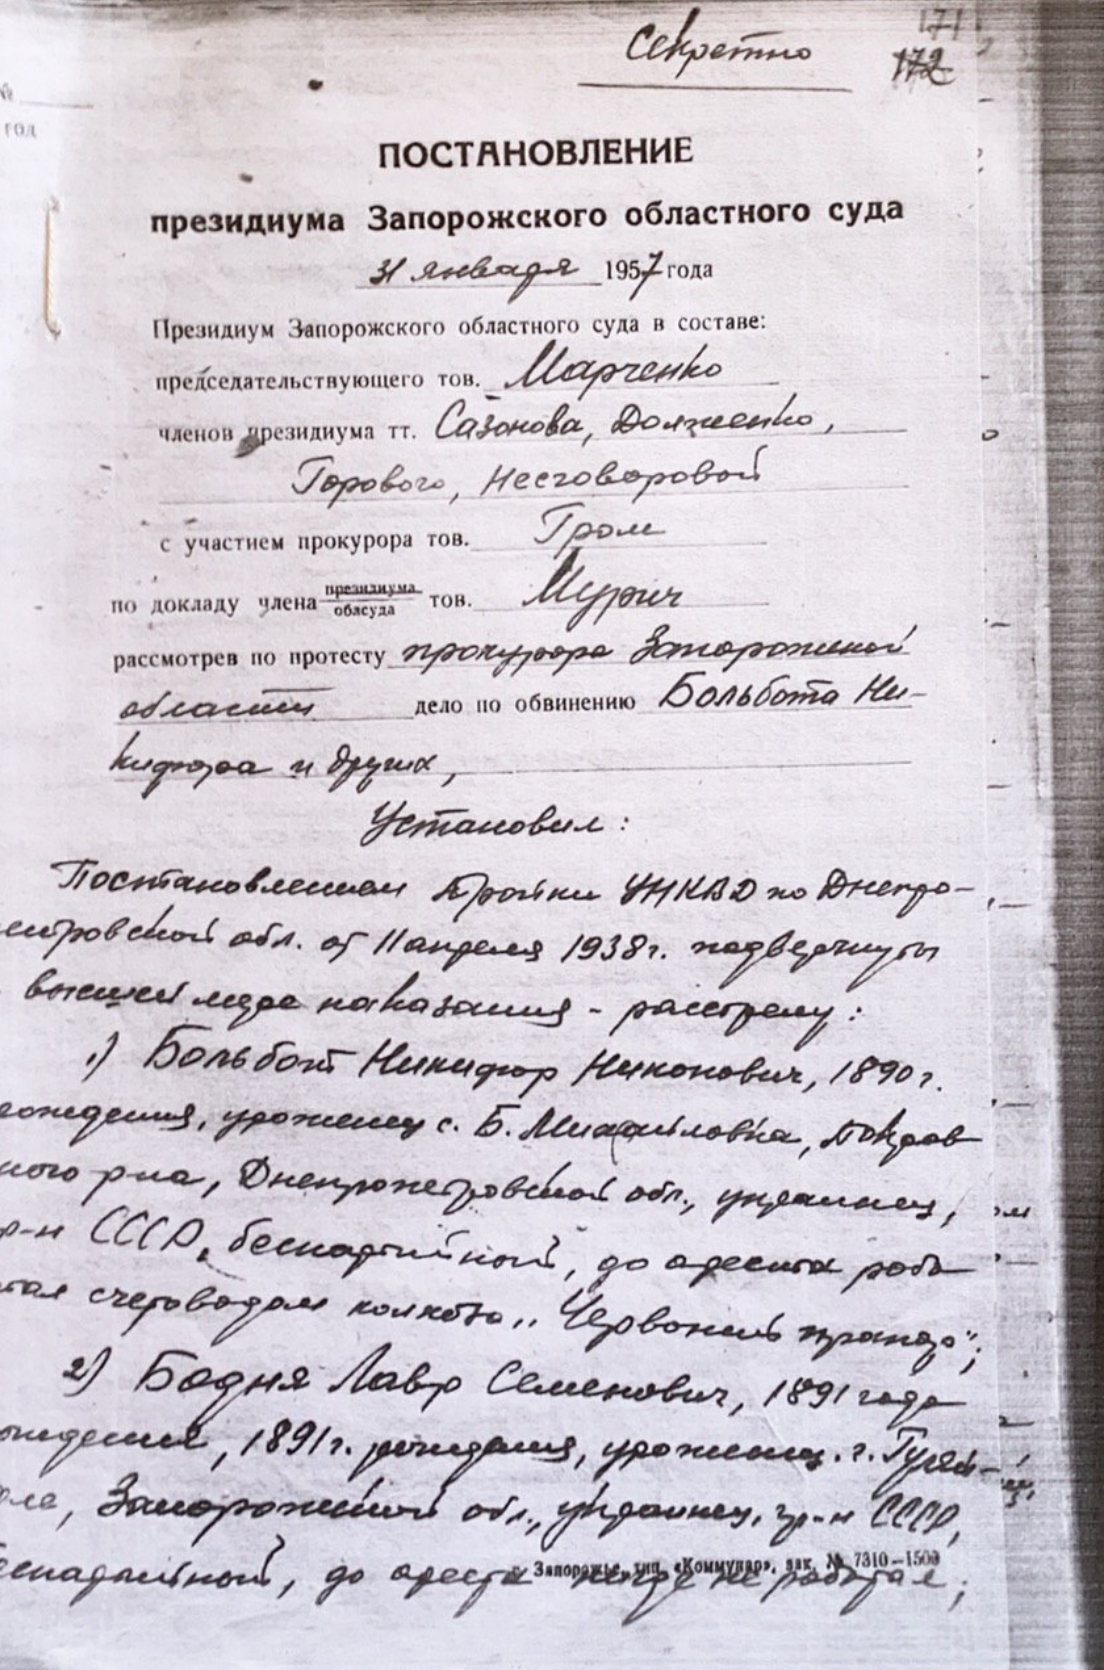 171
172
Секретно
№
год
ПОСТАНОВЛЕНИЕ
президиума Запорожского областного суда
31 января 1957 года
Президиум Запорожского областного суда в составе:
председательствующего тов. Марченко
членов президиума тт. Сазонова, Долженко,
Горового, Несговоровой
с участием прокурора тов. Гром
по докладу члена президиума облсуда тов. Мурич
рассмотрев по протесту прокурора Запорожской
области дело по обвинению Больбота Ни-
кифора и других,
Установил:
Постановлением Тройки УНКВД по Днепро-
петровской обл. от 11 апреля 1938 г. подвергнуты
высшей мере наказания - расстрелу:
1) Больбот Никифор Никонович, 1890 г.
рождения, уроженец с. Б. Михайловка, Покров
ного р-на, Днепропетровской обл., украинец,
р-н СССР, беспартийный, до ареста рабо
тал счетоводом колхоза „Червоный прапор";
2) Бодня Лавр Семенович, 1891 года
ождения, 1891 г. рождения, уроженец г. Гуляй-
ле, Запорожской обл., украинец, гр-н СССР,
еспартийный, до ареста нигде не работал;
Запорожье, тип. «Коммунар», зак. № 7310—1500